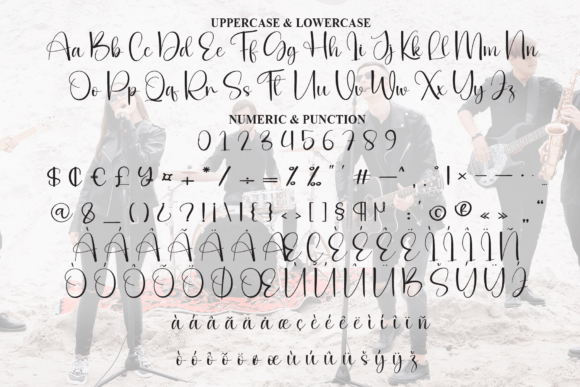 UPPERCASE & LOWERCASE
Aa Bb Cc Dd Ee Ff Gg Hh Ii Jj Kk Ll Mm Nn
Oo Pp Qq Rr Ss Tt Uu Vv Ww Xx Yy Zz
NUMERIC & PUNCTION
0 1 2 3 4 5 6 7 8 9
$ ¢ € £ ¥ ¤ + * / ÷ = % ‰ " ' # — ^ , . ° | × – — · .. _
@ & _ ( ) ¿ ? ! ¡ \ | { } < > [ ] § ¶ : ' © ® « » „ “
À Á Â Ã Ä Å Æ Ç È É Ê Ë Ì Í Î Ï Ñ
Ò Ó Ô Õ Ö Ø Œ Ù Ú Û Ü ß Š Ý Ÿ Ž
à á â ã ä å æ ç è é ê ë ì í î ï ñ
ò ó ô õ ö ø œ ù ú û ü š ý ÿ ž